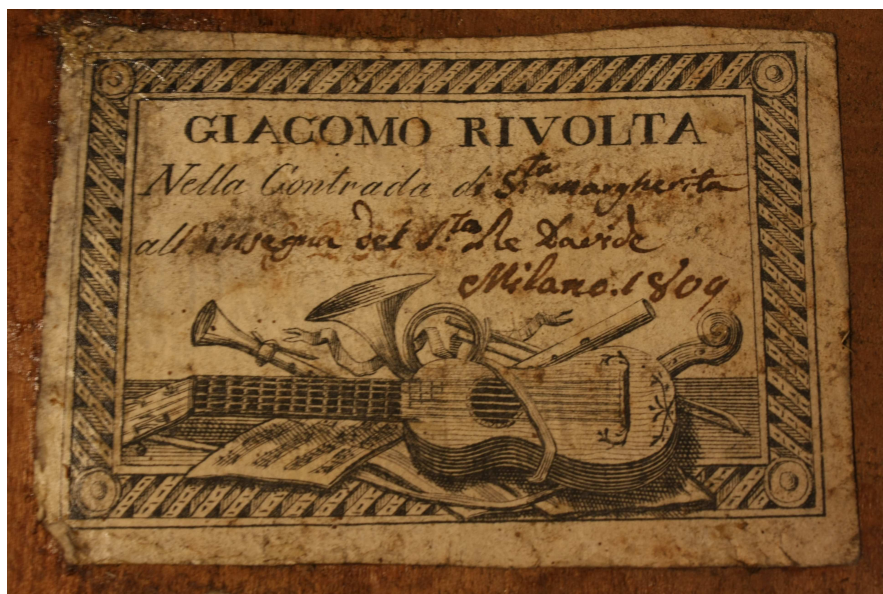 GIACOMO RIVOLTA
Nella Contrada di S.ta margherita
all'insegna del S.to Re Davide
Milano. 1809